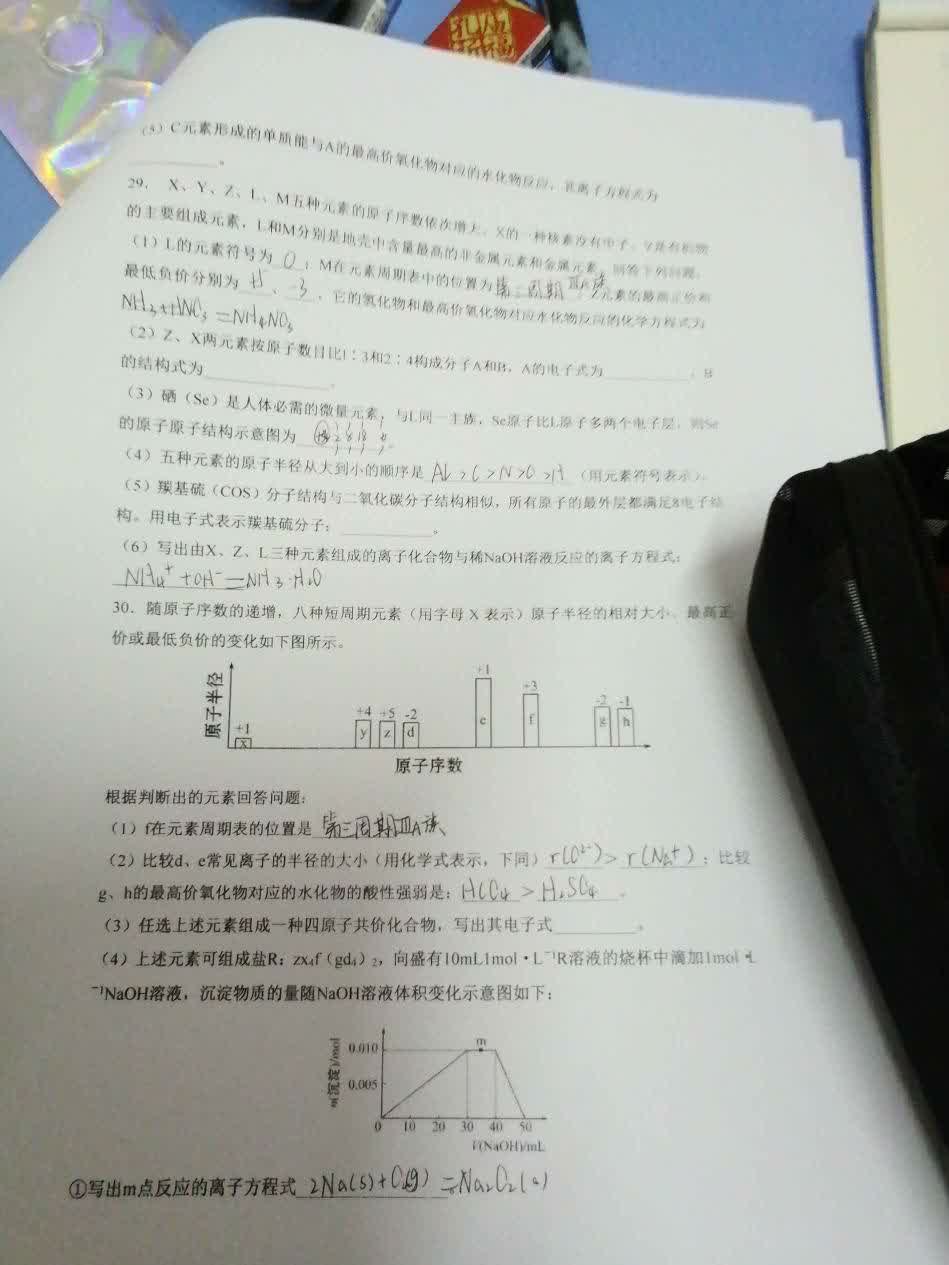 (5) C元素形成的单质能与A的最高价氧化物对应的水化物反应，其离子方程式为
________。
29. X、Y、Z、L、M五种元素的原子序数依次增大。X的一种核素没有中子，Y是有机物
的主要组成元素，L和M分别是地壳中含量最高的非金属元素和金属元素。回答下列问题：
(1) L的元素符号为 O ；M在元素周期表中的位置为 第三周期ⅢA族 ；Z元素的最高正价和
最低负价分别为 、-3 、它的氢化物和最高价氧化物对应水化物反应的化学方程式为
NH3+HNO3=NH4NO3
(2) Z、X两元素按原子数目比1：3和2：4构成分子A和B，A的电子式为________，B
的结构式为________。
(3) 硒（Se）是人体必需的微量元素，与L同一主族，Se原子比L原子多两个电子层，则Se
的原子原子结构示意图为 2 8 18
(4) 五种元素的原子半径从大到小的顺序是 AL>C>N>O>H （用元素符号表示）
(5) 羰基硫（COS）分子结构与二氧化碳分子结构相似，所有原子的最外层都满足8电子结
构。用电子式表示羰基硫分子：________。
(6) 写出由X、Z、L三种元素组成的离子化合物与稀NaOH溶液反应的离子方程式：
NH4⁺+OH⁻=NH3·H2O
30. 随原子序数的递增，八种短周期元素（用字母 X 表示）原子半径的相对大小、最高正
价或最低负价的变化如下图所示。
原子半径
+1 +4 +5 -2 +1 +3 -2 -1
x y z d e f g h
原子序数
根据判断出的元素回答问题：
(1) f在元素周期表的位置是 第三周期ⅢA族
(2) 比较d、e常见离子的半径的大小（用化学式表示，下同）r(O²⁻)> r(Na⁺) ；比较
g、h的最高价氧化物对应的水化物的酸性强弱是：HClO4 > H2SO4 。
(3) 任选上述元素组成一种四原子共价化合物，写出其电子式________。
(4) 上述元素可组成盐R：zx₄f（gd₄）₂，向盛有10mL1mol·L⁻¹R溶液的烧杯中滴加1mol·L
⁻¹NaOH溶液，沉淀物质的量随NaOH溶液体积变化示意图如下：
n(沉淀)/mol
0.010
0.005
m
0 10 20 30 40 50
V(NaOH)/mL
①写出m点反应的离子方程式 2Na(s)+O2(g) =Na2O2(s)